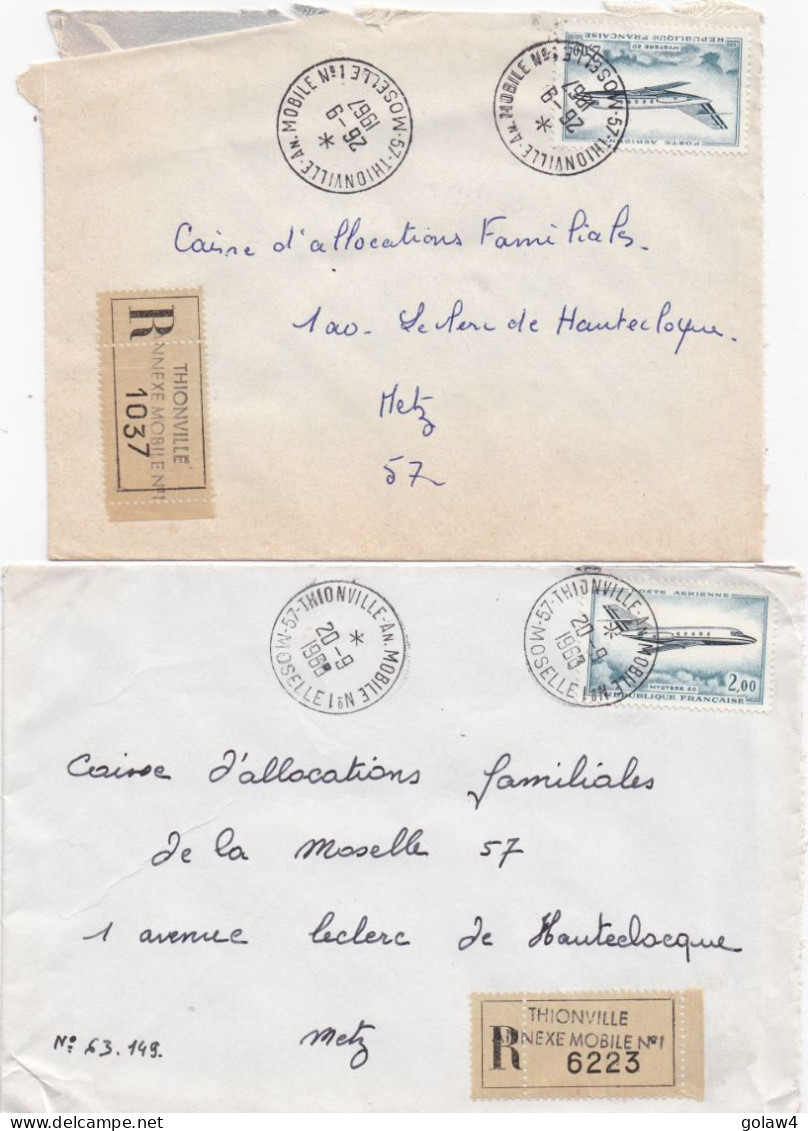 57-THIONVILLE-AN. MOBILE Nº1
26-9
1967
MOSELLE
57-THIONVILLE-AN. MOBILE Nº1
26-9
1967
MOSELLE
REPUBLIQUE FRANÇAISE
MYSTERE 20
2,00
POSTE AERIENNE
Caisse d'allocations Familiales.
1 av. Leclerc de Hautecloque.
Metz
57
R
THIONVILLE
NNEXE MOBILE Nº1
1037
57-THIONVILLE-AN. MOBILE Nº1
20-9
MOSELLE
57-THIONVILLE-AN. MOBILE Nº1
20-9
MOSELLE
POSTE AERIENNE
2,00
MYSTERE 20
REPUBLIQUE FRANÇAISE
Caisse d'allocations familiales
de la Moselle 57
1 avenue leclerc de Hauteclocque
Metz
Nº 63.149.
R
THIONVILLE
NEXE MOBILE Nº1
6223
golaw4